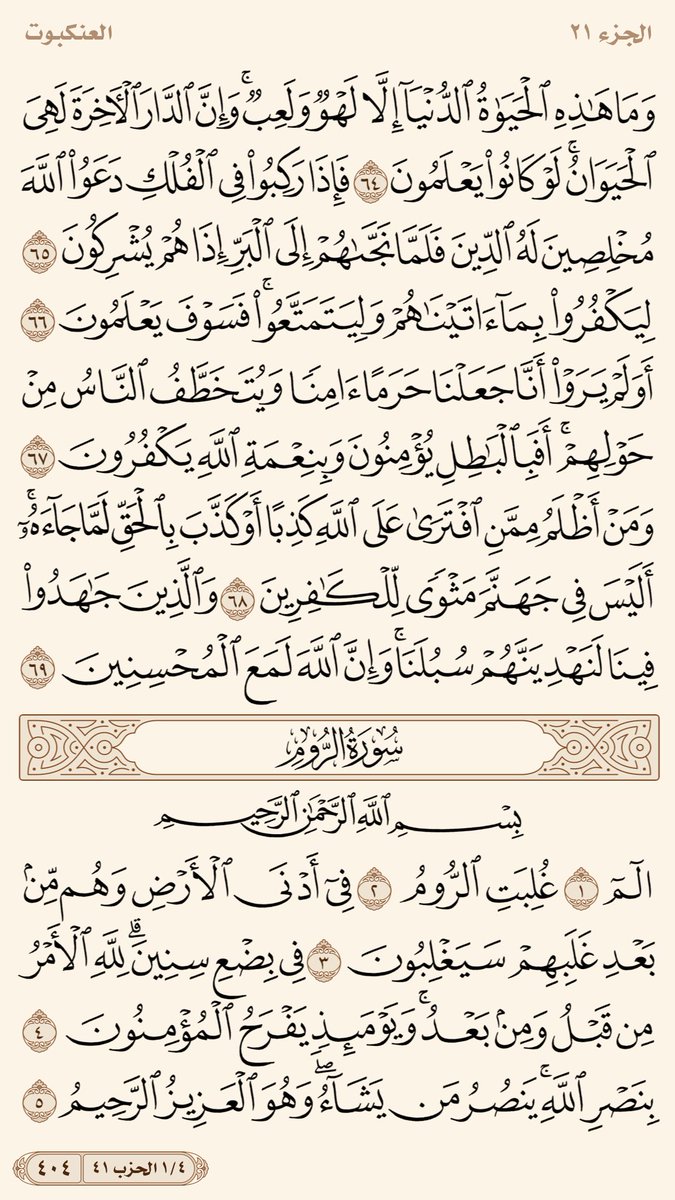 الجزء ٢١
العنكبوت
وَمَا هَٰذِهِ ٱلْحَيَوٰةُ ٱلدُّنْيَآ إِلَّا لَهْوٌ وَلَعِبٌ ۚ وَإِنَّ ٱلدَّارَ ٱلْـَٔاخِرَةَ لَهِىَ
ٱلْحَيَوَانُ ۚ لَوْ كَانُوا۟ يَعْلَمُونَ ٦٤ فَإِذَا رَكِبُوا۟ فِى ٱلْفُلْكِ دَعَوُا۟ ٱللَّهَ
مُخْلِصِينَ لَهُ ٱلدِّينَ فَلَمَّا نَجَّىٰهُمْ إِلَى ٱلْبَرِّ إِذَا هُمْ يُشْرِكُونَ ٦٥
لِيَكْفُرُوا۟ بِمَآ ءَاتَيْنَٰهُمْ وَلِيَتَمَتَّعُوا۟ ۖ فَسَوْفَ يَعْلَمُونَ ٦٦
أَوَلَمْ يَرَوْا۟ أَنَّا جَعَلْنَا حَرَمًا ءَامِنًا وَيُتَخَطَّفُ ٱلنَّاسُ مِنْ
حَوْلِهِمْ ۚ أَفَبِٱلْبَٰطِلِ يُؤْمِنُونَ وَبِنِعْمَةِ ٱللَّهِ يَكْفُرُونَ ٦٧
وَمَنْ أَظْلَمُ مِمَّنِ ٱفْتَرَىٰ عَلَى ٱللَّهِ كَذِبًا أَوْ كَذَّبَ بِٱلْحَقِّ لَمَّا جَآءَهُۥٓ ۚ
أَلَيْسَ فِى جَهَنَّمَ مَثْوًى لِّلْكَٰفِرِينَ ٦٨ وَٱلَّذِينَ جَٰهَدُوا۟
فِينَا لَنَهْدِيَنَّهُمْ سُبُلَنَا ۚ وَإِنَّ ٱللَّهَ لَمَعَ ٱلْمُحْسِنِينَ ٦٩
سُورَةُ الرُّومِ
بِسْمِ ٱللَّهِ ٱلرَّحْمَٰنِ ٱلرَّحِيمِ
الٓمٓ ١ غُلِبَتِ ٱلرُّومُ ٢ فِىٓ أَدْنَى ٱلْأَرْضِ وَهُم مِّنۢ
بَعْدِ غَلَبِهِمْ سَيَغْلِبُونَ ٣ فِى بِضْعِ سِنِينَ ۗ لِلَّهِ ٱلْأَمْرُ
مِن قَبْلُ وَمِنۢ بَعْدُ ۚ وَيَوْمَئِذٍ يَفْرَحُ ٱلْمُؤْمِنُونَ ٤
بِنَصْرِ ٱللَّهِ ۚ يَنصُرُ مَن يَشَآءُ ۖ وَهُوَ ٱلْعَزِيزُ ٱلرَّحِيمُ ٥
١/٤ الحزب ٤١
٤٠٤